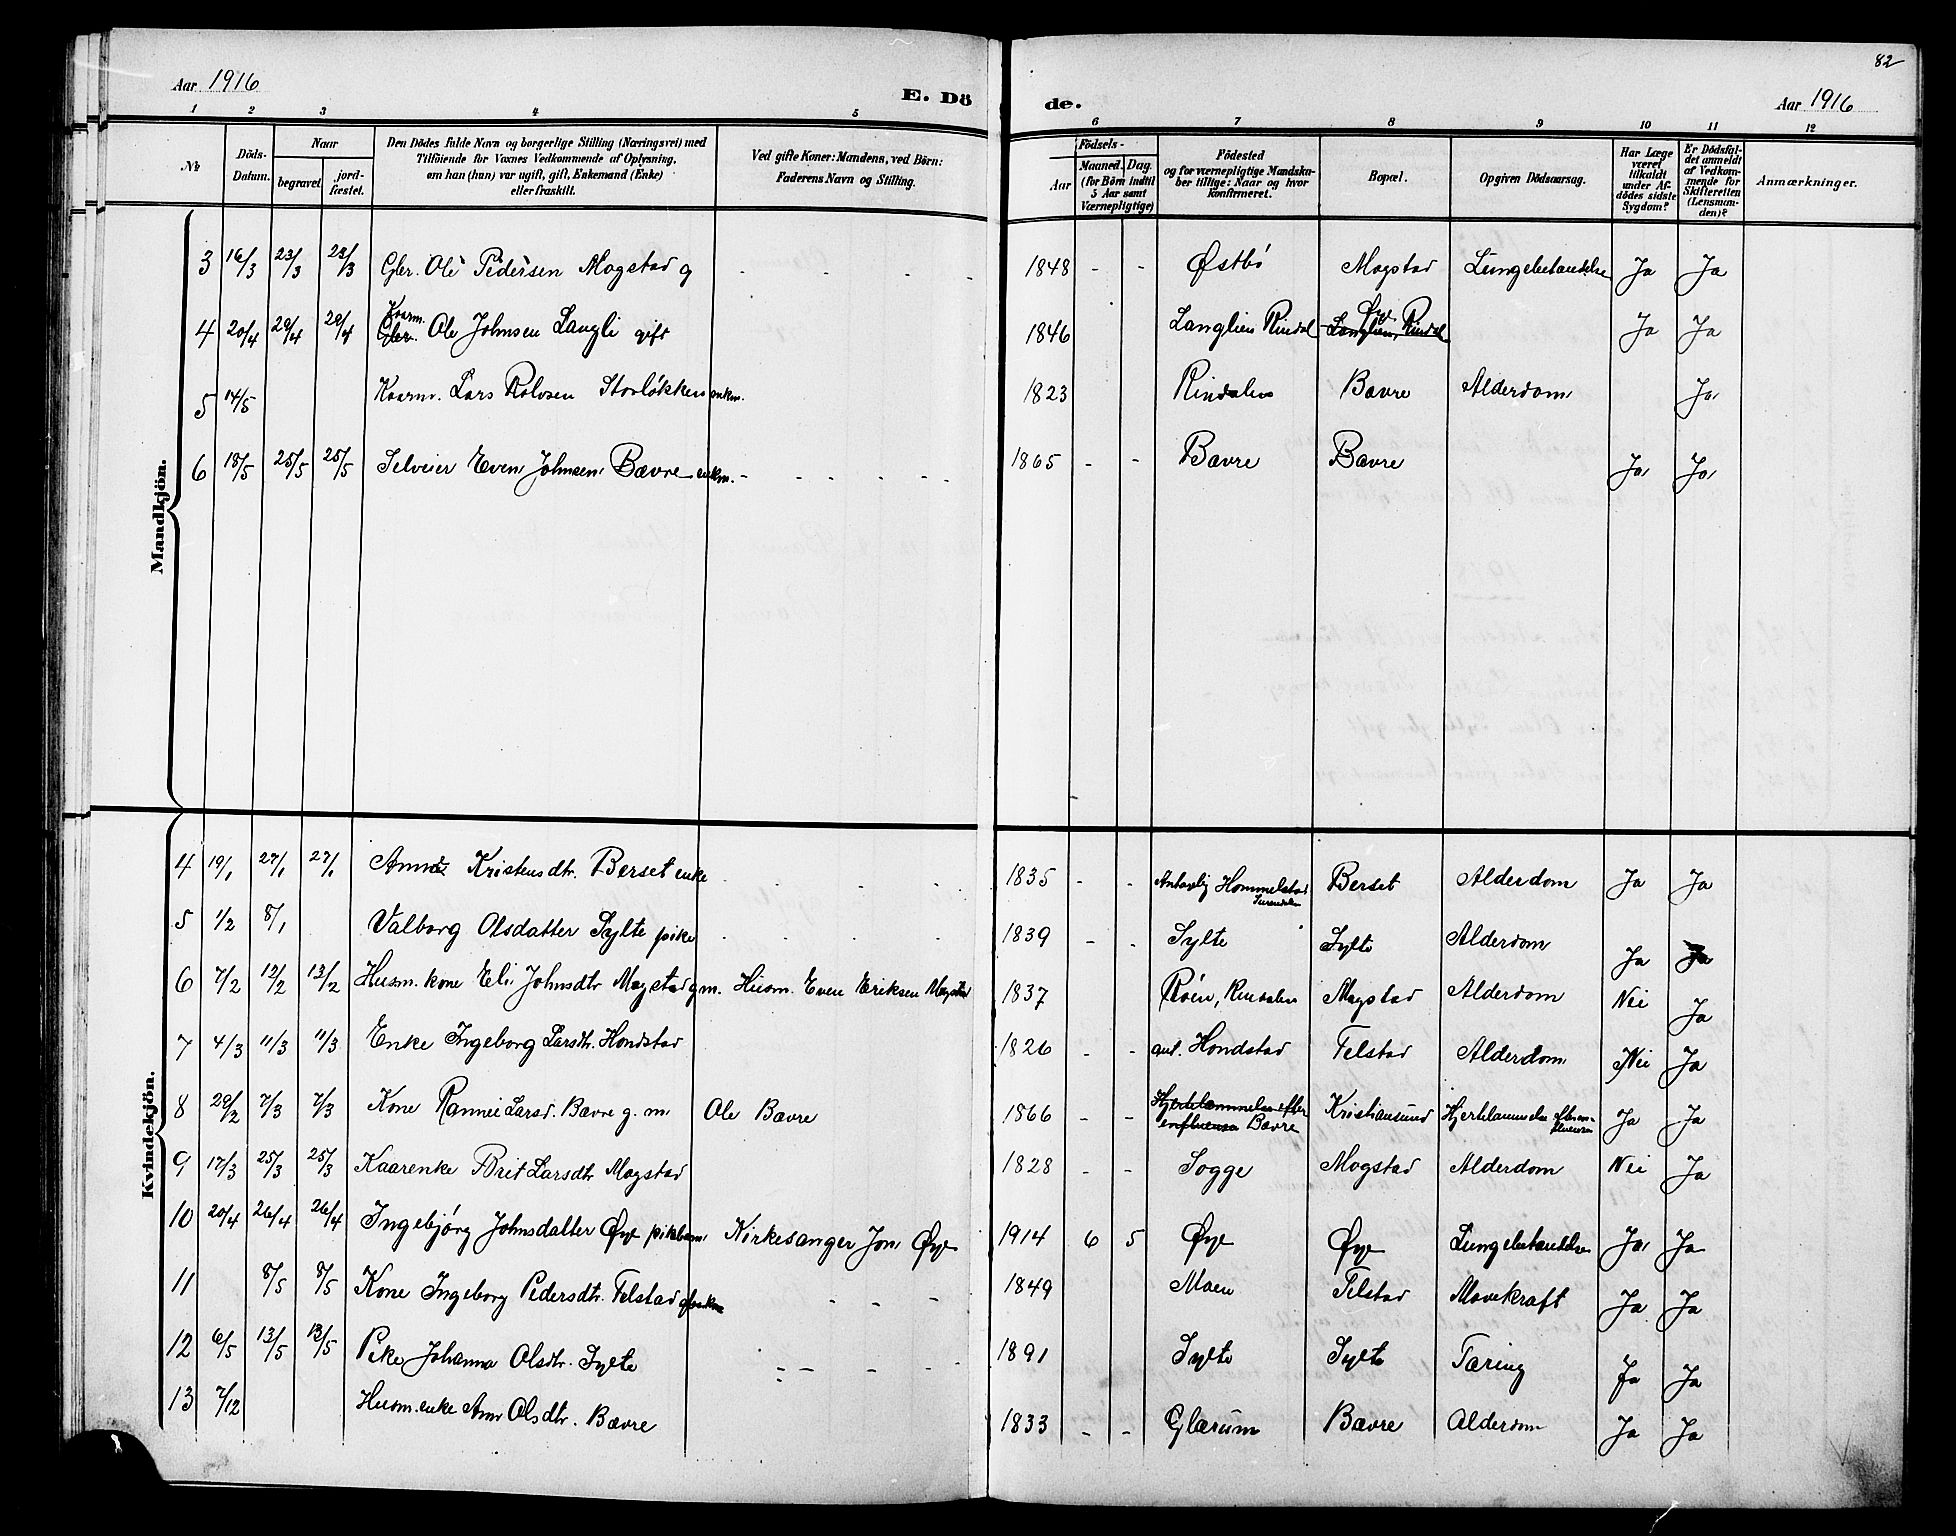 82
Aar 1916
E. Dö
de.
Aar 1916
1 2 3 4 5 6 7 8 9 10 11 12
№
Döds-Datum.
Naar
begravet.
jord-fæstet.
Den Dödes fulde Navn og borgerlige Stilling (Næringsvei) med
Tilföiende for Voxnes Vedkommende af Oplysning,
om han (hun) var ugift, gift, Enkemand (Enke)
eller fraskilt.
Ved gifte Koner: Mandens, ved Börn:
Faderens Navn og Stilling.
Födsels-
Aar
Maaned. Dag.
(for Börn indtil
5 Aar samt
Værnepligtige)
Födested
og for værnepligtige Mandska-
ber tillige: Naar og hvor
konfirmeret.
Bopæl.
Opgiven Dödsaarsag.
Har Læge
været
tilkaldt
under Af-
dödes sidste
Sygdom?
Er Dödsfal-
det anmeldt
af Vedkom-
mende for
Skifteretten
(Lensman-
den)?
Anmærkninger.
Mandkjön.
3 16/3 23/3 23/3 Gbr. Ole Pedersen Mogstad g - - - - 1848 - - Østbö Mogstad Lungebetændelse Ja Ja
4 20/4 29/4 29/4 Kaarm. Gbr. Ole Johnsen Langli gift 1846 Langlien Rindal Øye Langlien, Rindal Ja Ja
5 14/5 Kaarm. Lars Rolvsen Storløkken enkm. 1823 Rindalen Bævre Alderdom Ja
6 18/5 25/5 25/5 Selveier Even Johnsen Bævre enkm. - - - - - - 1865 - - Bævre Bævre Ja Ja
Kvindekjön.
4 19/1 27/1 27/1 Anne Kristensdtr. Berset enke - - - - 1835 - - Antagelig Hommelstad Surendalen Berset Alderdom Ja Ja
5 1/2 8/1 Valborg Olsdatter Sylte pike - - - - 1839 - - Sylte Sylte Alderdom Ja Ja
6 7/2 12/2 13/2 Husm. kone Eli Johnsdtr Mogstad g m. Husm. Even Eriksen Mogstad 1837 Röen, Rindalen Mogstad Alderdom Nei Ja
7 4/3 11/3 11/3 Enke Ingeborg Larsdtr. Hondstad 1826 - - ant. Hondstad Telstad Alderdom Nei Ja
8 29/2 7/3 7/3 Kone Rannei Larsd. Bævre g. m. Ole Bævre 1866 - - Hjertelammelse efter influensa Bævre Kristiansund Hjertelammelse efter influensa Ja Ja
9 17/3 25/3 25/3 Kaarenke Brit Larsdtr Mogstad 1828 - - Sogge Mogstad Alderdom Nei Ja
10 20/4 26/4 26/4 Ingebjörg Johnsdatter Øye pikebarn Kirkesanger Jon Øye 1914 6 5 Øye Øye Lungebetændelse Ja Ja
11 8/5 8/5 Kone Ingeborg Pedersdtr. Telstad - - - 1849 Moen Telstad Mavekræft Ja Ja
12 6/5 13/5 13/5 Pike Johanna Olsdtr. Sylte - - - - 1891 Sylte Sylte Tæring Ja Ja
13 7/12 Husm. enke Ann Olsdtr. Bævre 1833 - - Glærum Bævre Alderdom Ja Ja